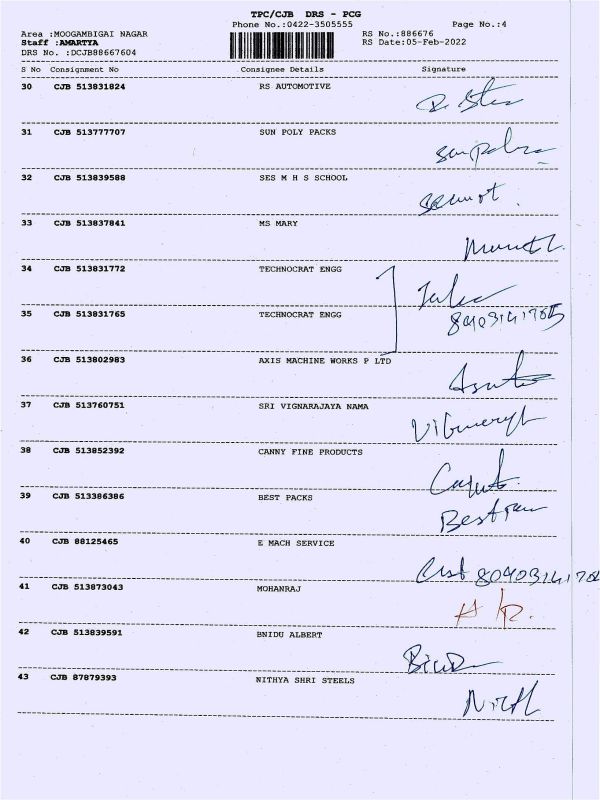 TPC/CJB DRS - PCG
Phone No.:0422-3505555 Page No.:4
Area :MOOGAMBIGAI NAGAR RS No.:886676
Staff :AMARTYA RS Date:05-Feb-2022
DRS No. :DCJB88667604
S No Consignment No Consignee Details Signature
30 CJB 513831824 RS AUTOMOTIVE
31 CJB 513777707 SUN POLY PACKS
32 CJB 513839588 SES M H S SCHOOL
33 CJB 513837841 MS MARY
34 CJB 513831772 TECHNOCRAT ENGG
35 CJB 513831765 TECHNOCRAT ENGG
36 CJB 513802983 AXIS MACHINE WORKS P LTD
37 CJB 513760751 SRI VIGNARAJAYA NAMA
38 CJB 513852392 CANNY FINE PRODUCTS
39 CJB 513386386 BEST PACKS
40 CJB 88125465 E MACH SERVICE
41 CJB 513873043 MOHANRAJ
42 CJB 513839591 BNIDU ALBERT
43 CJB 87879393 NITHYA SHRI STEELS